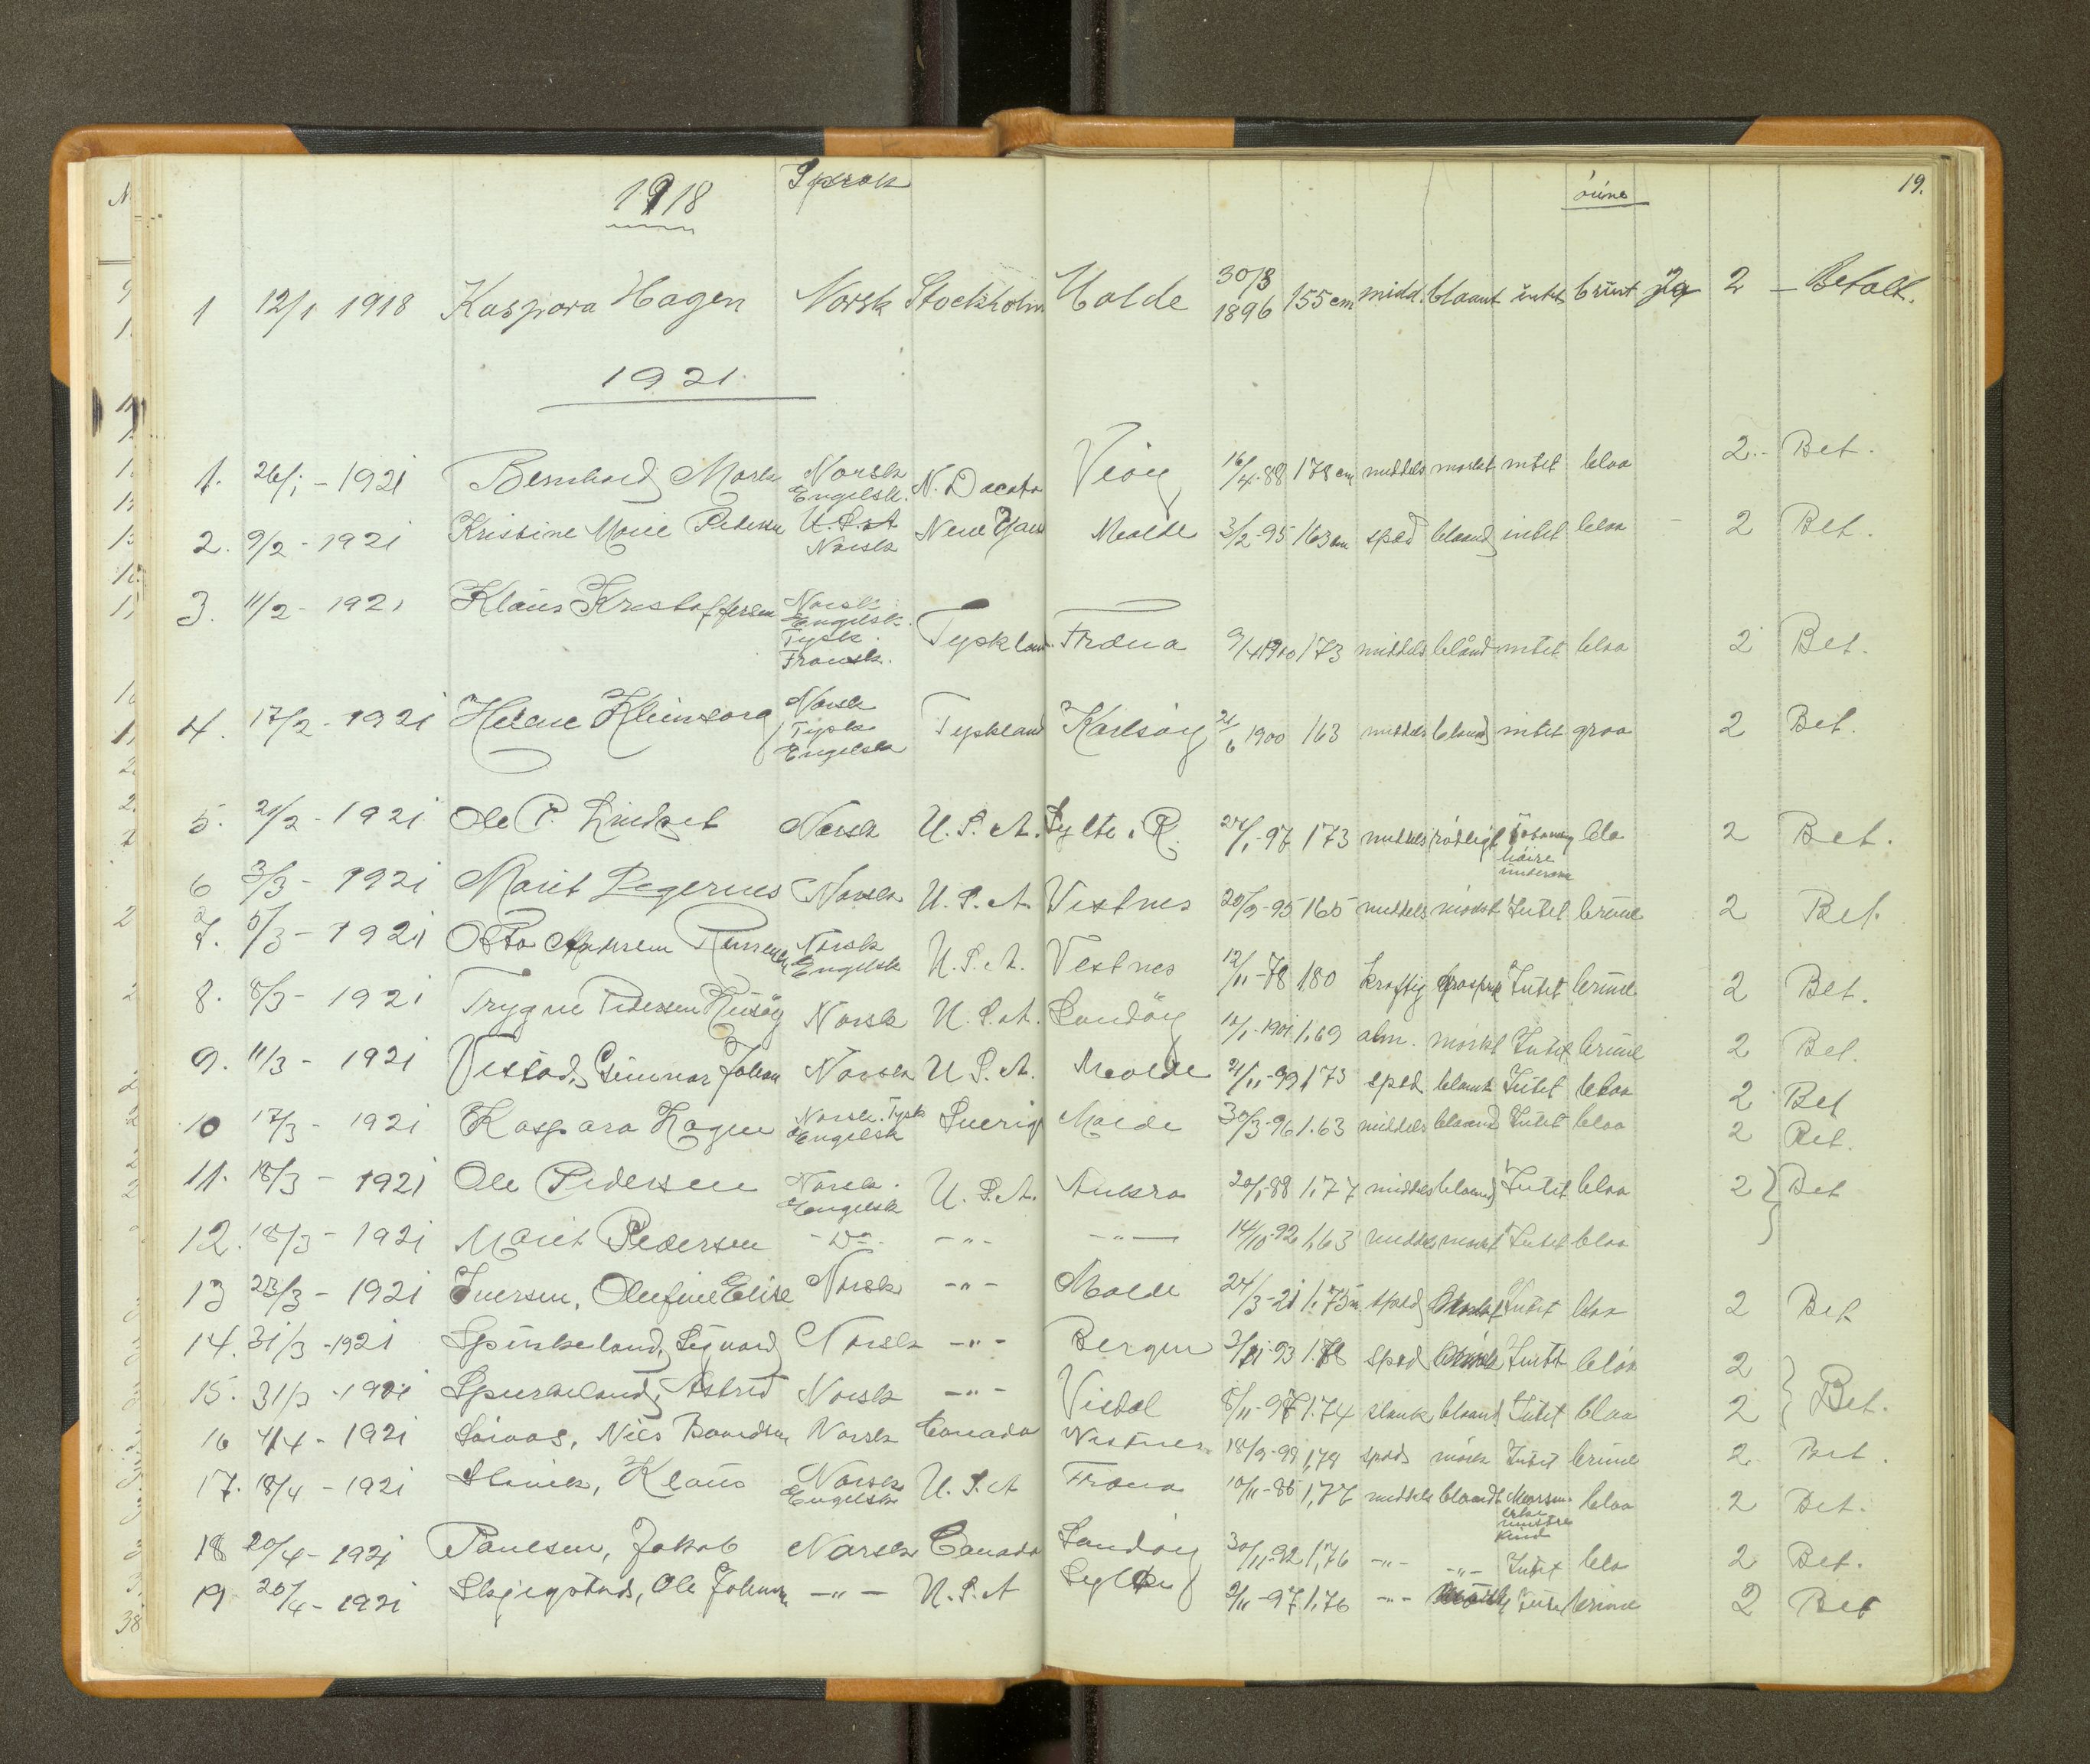 19.
1918 Sprok öine
1 12/1 1918 Kaspara Hagen Norsk Stockholm Molde 30/3 1896 155 cm midd. blaant intet brunt Ja 2 — Betalt.
1921
1. 26/1 - 1921 Bernhard Norsk Engelsk. N. Dacota Veöy 16/4-88 178 cm middels mørkt intet blaa 2.- Bet.
2. 9/2 - 1921 Kristine Marie Pedersen U.S.A Norsk New Molde 3/2-95 163 cm spæd blaand intet blaa - 2 Bet.
3. 11/2 - 1921 Klaus Kristoffersen Norsk Engelsk. Tysk. Fransk. Tyskland Fræna 9/4 1900 173 middels blånd intet blaa 2 Bet.
4. 17/2 - 1921 Helene Norsk Tysk Engelsk Tyskland 21/6 1900 163 middels blaand intet graa 2 Bet.
5. 21/2 - 1921 Ole P. Lindset Norsk U.S.A. Sylte. R. 24/1-97 173 middels rødligt höire underarm bla 2 Bet.
6 3/3 - 1921 Marit Norsk U.S.A. Vestnes 20/9-95 165 middels mörkt Intet brune 2 Bet.
7. 5/3 - 1921 Otto Norsk Engelsk U.S.A. Vestnes 12/11-78 180 kraftig Intet brune 2 Bet.
8. 8/3 - 1921 Trygve Pedersen Norsk U.S.A. Sandöy 10/1-1901 1.69 alm. mörkt Intet brune 2 Bet.
9. 11/3 - 1921 Gunnar Johan Norsk U.S.A. Molde 21/11-99 173 spæd blaant Intet blaa 2 Bet
10 17/3 - 1921 Kaspara Hagen Norsk. Tysk Engelsk Sverig Molde 30/3-96 1.63 middels blaand Intet blaa 2 Bet.
11. 18/3 - 1921 Ole Pedersen Norsk. Engelsk U.S.A. Aukra 20/1-88 1.77 middels blaand Intet blaa 2 } Bet
12. 18/3 - 1921 Marit Pedersen - Do - - " - - " - 14/10-92 1,63 middels mørkt Intet blaa
13 23/3 - 1921 Iversen, Olufine Elise Norsk - " - Molde 24/3-21 1.75 m. spæd Intet blaa 2 Bet
14. 31/3 - 1921 Spurkeland, Sigvard Norsk - " - Bergen spæd Intet blåa 2
15. 31/3 - 1921 Spurkeland, Astrid Norsk - " - Visdal 1.74 slank blaand Intet blaa 2 } Bet.
16 4/4 - 1921 Nils Norsk Canada Vestnes 18/9-99 1,78 spæd mörk Intet brune 2 Bet.
17. 18/4 - 1921 Klaus Norsk Engelsk U.S.A Fræna 10/11-86 1,77 middels blaandt kind blaa 2 Bet.
18 20/4 - 1921 Paulsen, Jakob Norsk Canada Sandöy 30/11-92 1,76 - " - - " - Intet bla 2 Bet.
19 20/4 - 1921 Ole Johan - " - U.S.A 1.76 - " - brune 2 Bet